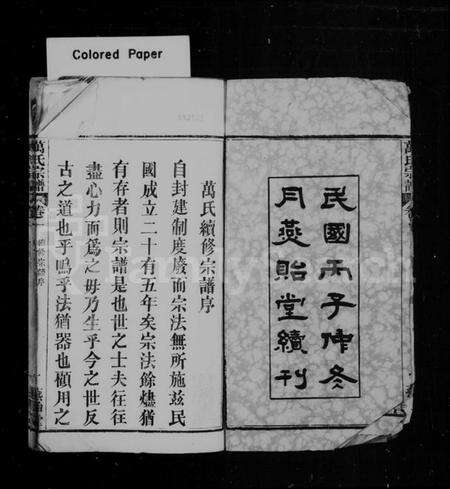 Colored Paper
民國丙子仲冬
月燕貽堂續刊
萬氏宗譜
萬氏續修宗譜序
自封建制度廢而宗法無所施茲民
國成立二十有五年矣宗法餘燼猶
有存者則宗譜是也世之士夫往往
盡心力而為之毋乃生乎今之世反
古之道也乎嗚乎法猶器也顧用之
萬氏宗譜
卷一